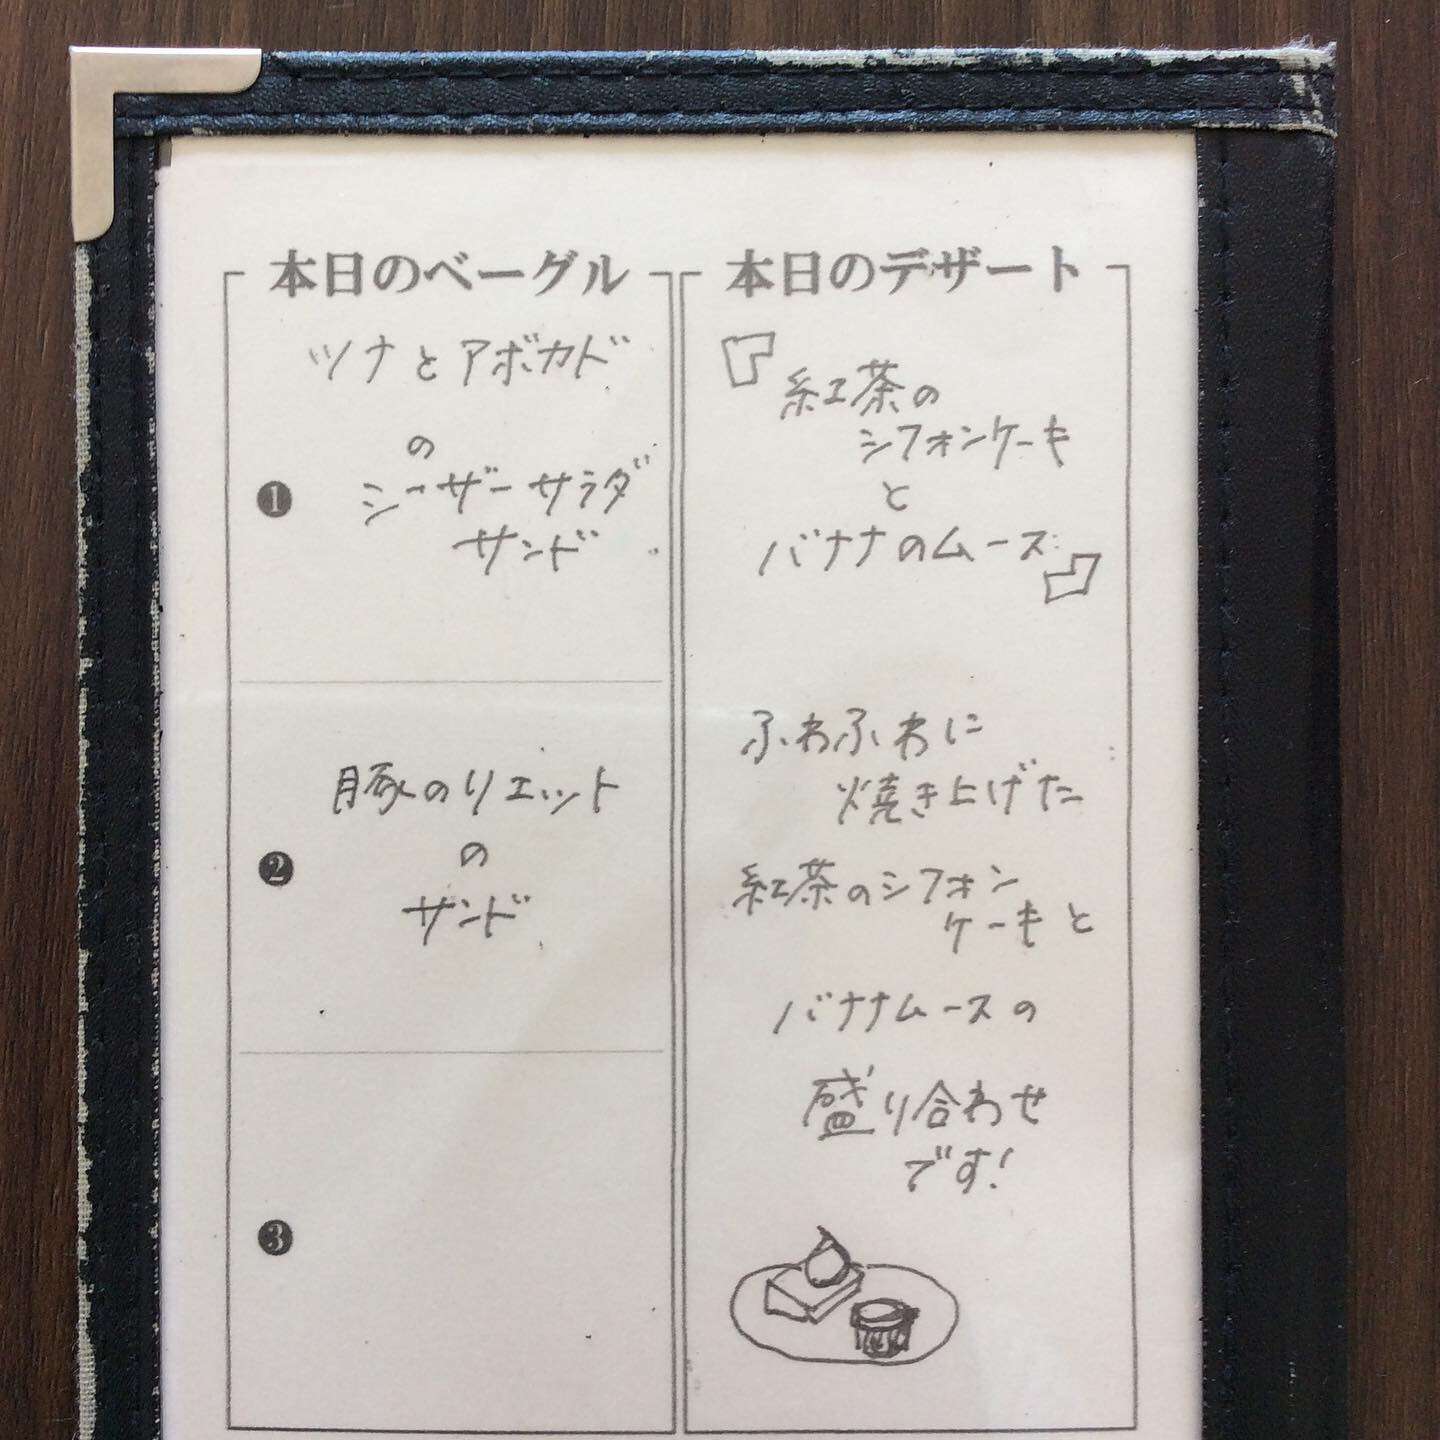 本日のベーグル
ツナとアボカド
の
❶
シーザーサラダ
サンド
豚のリエット
❷
の
サンド
❸
本日のデザート
『紅茶の
シフォンケーキ
と
バナナのムース』
ふわふわに
焼き上げた
紅茶のシフォン
ケーキと
バナナムースの
盛り合わせ
です!